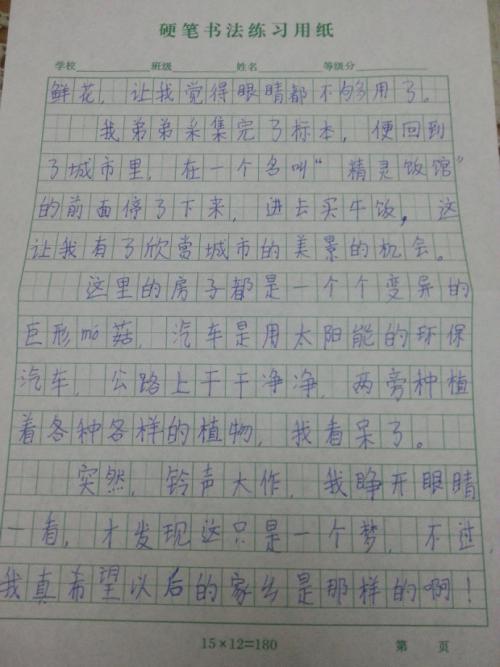 硬笔书法练习用纸
学校 班级 姓名 等级分
鲜花，让我觉得眼睛都不够用了。
我弟弟采集完了标本，便回到
了城市里，在一个名叫“精灵饭馆”
的前面停了下来，进去买午饭，这
让我有了欣赏城市的美景的机会。
这里的房子都是一个个变异的
巨形mó菇，汽车是用太阳能的环保
汽车，公路上干干净净，两旁种植
着各种各样的植物，我看呆了。
突然，铃声大作，我睁开眼睛
一看，才发现这只是一个梦，不过，
我真希望以后的家乡是那样的啊！
15×12=180 第 页